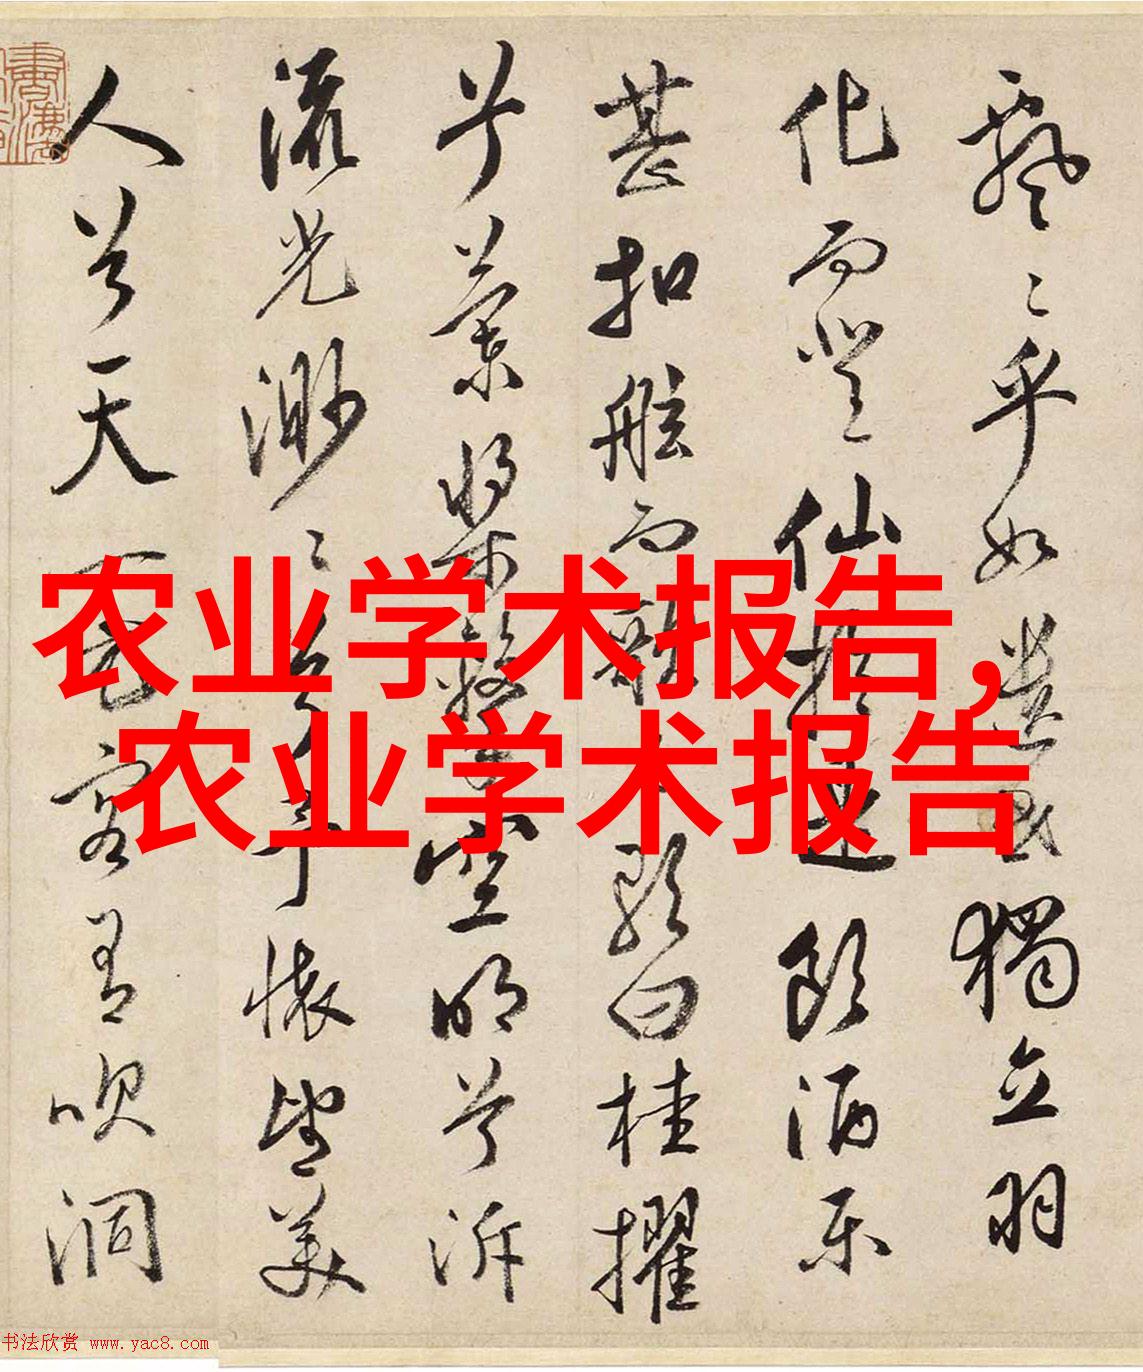 飄〻乎如遺世獨立羽
化而登仙於是飲酒樂
甚扣舷而歌之歌曰桂擢
兮蘭槳擊空明兮泝
流光渺〻兮予懷望美
人兮天一方客有吹洞
农业学术报告,
农业学术报告
书法欣赏 www.yac8.com